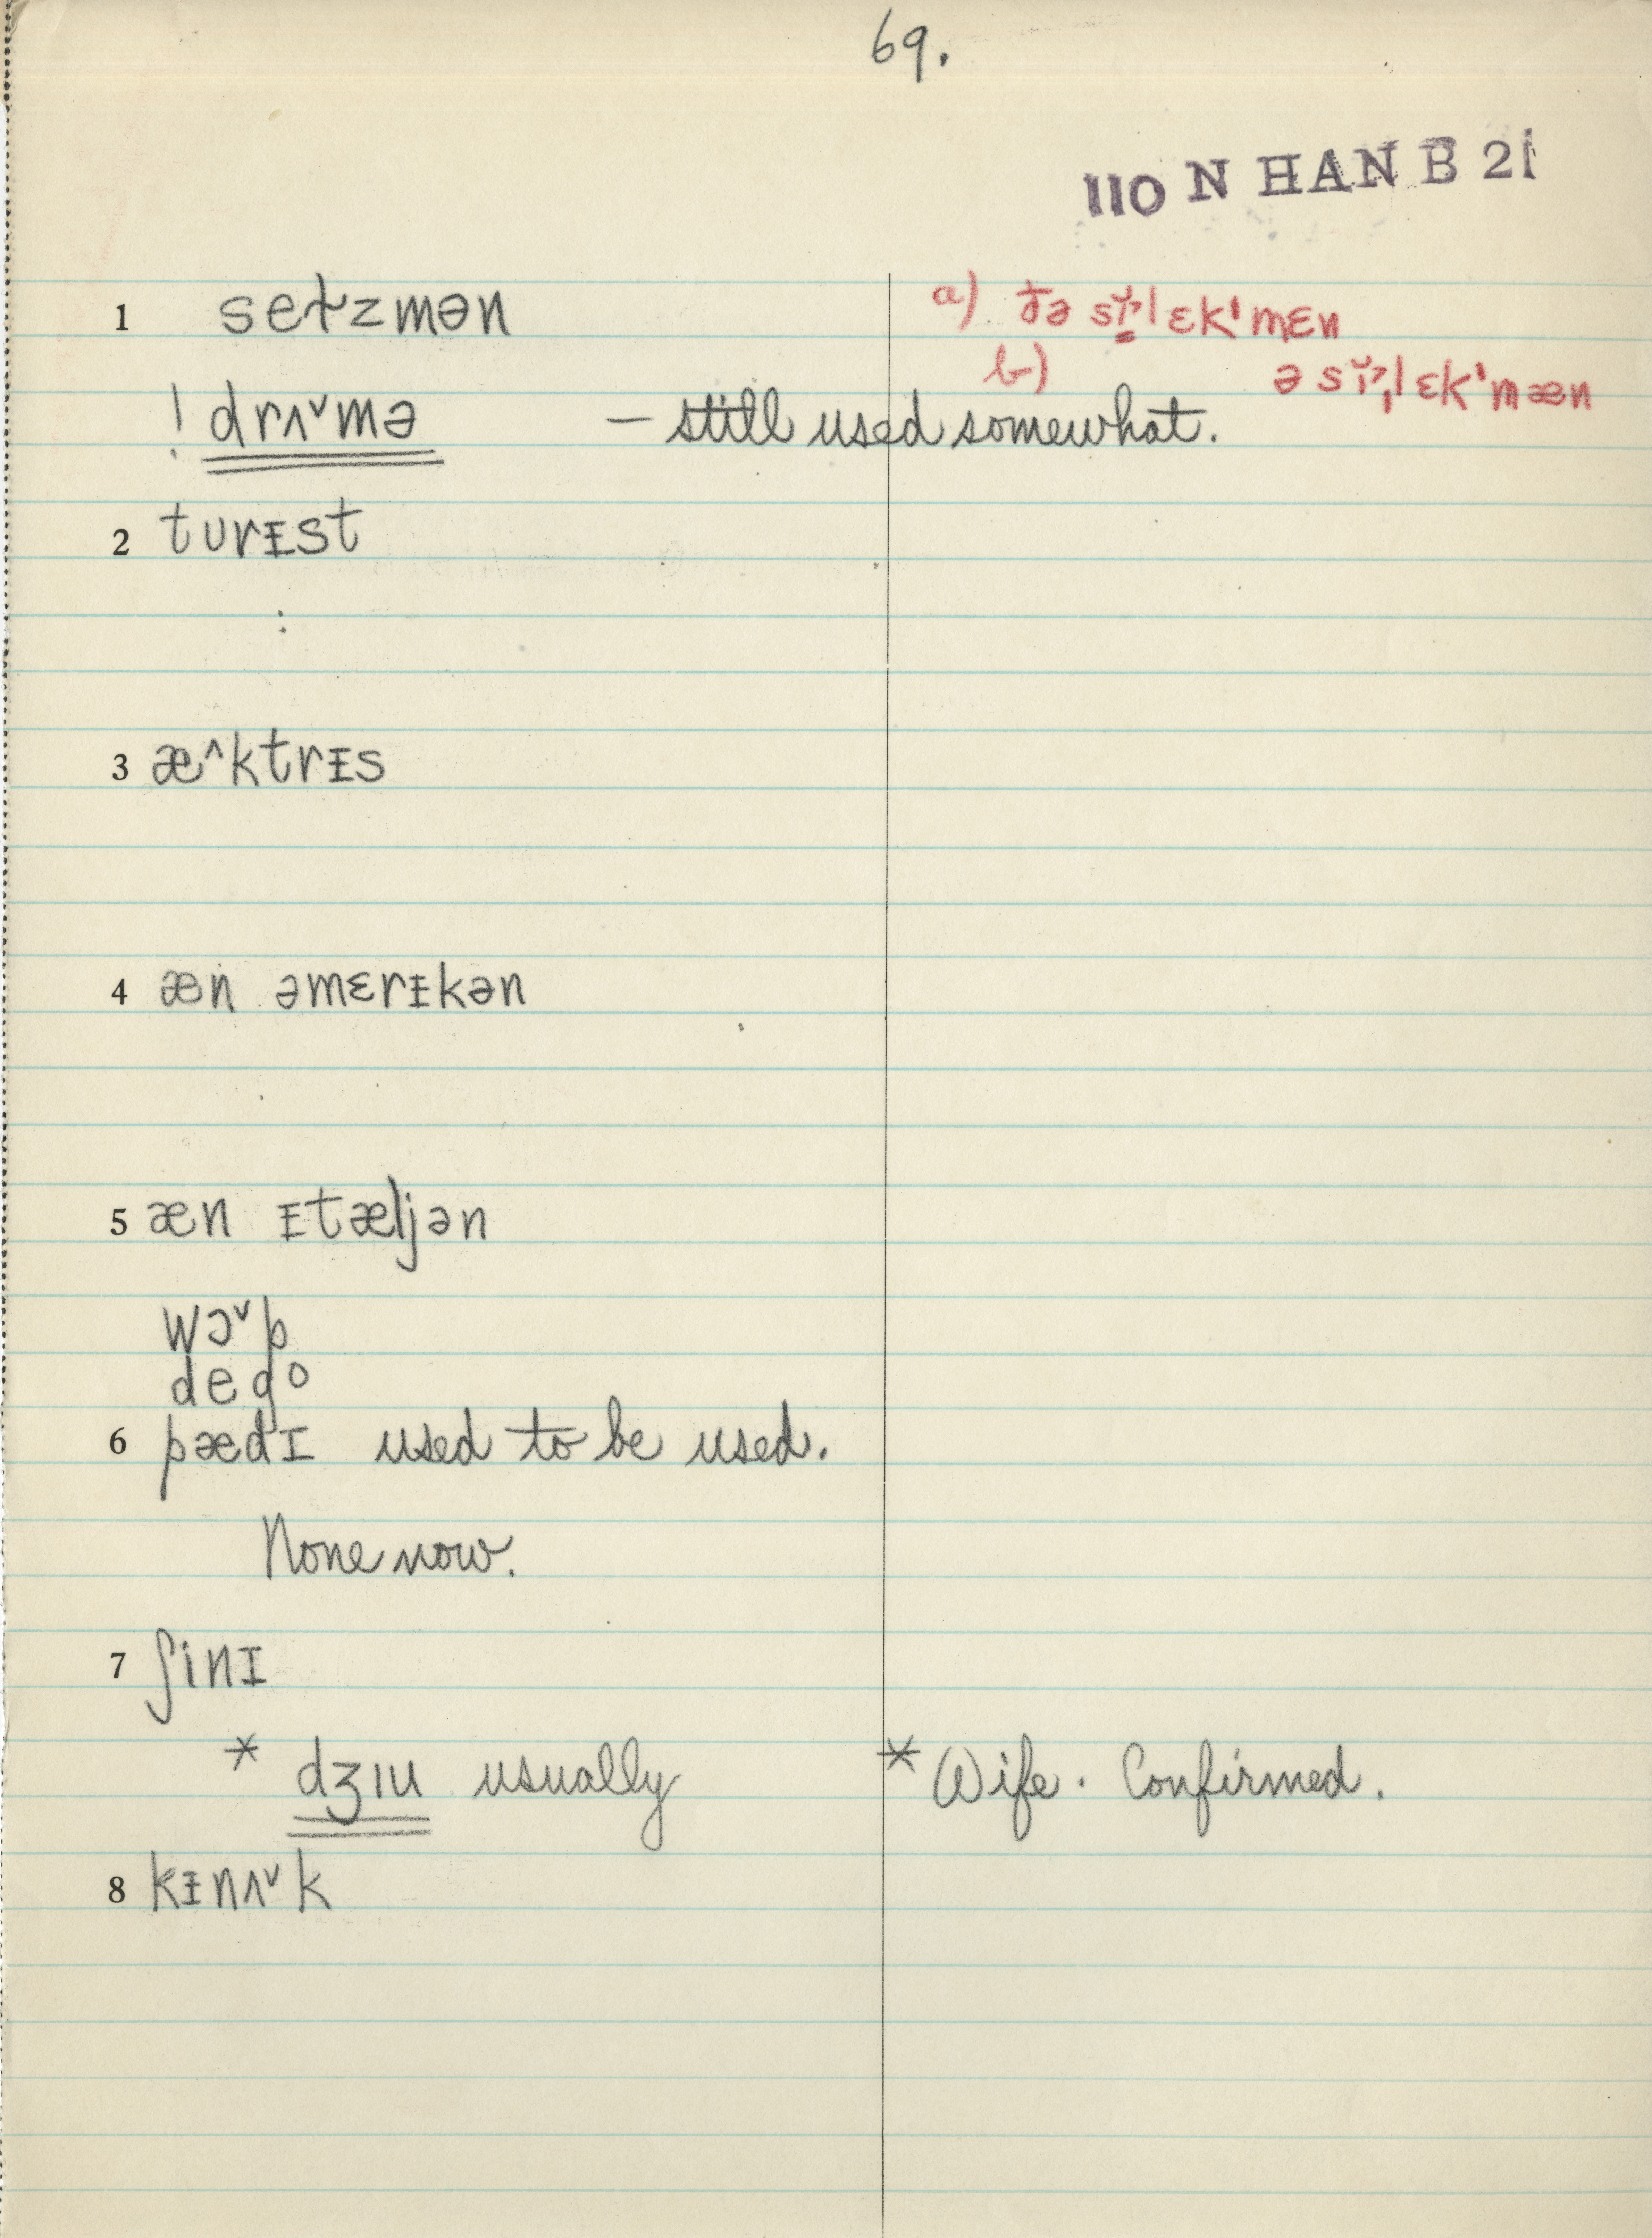 69.
110 N HAN B 21
1 seɫzmən
a) ðə sɪ̆lɛk'mɛn
b) ə sɪ̆lɛk'mæn
! drʌ˅mə – still used somewhat.
2 turᵻst
3 æ^ktrᵻs
4 æn əmɛrᵻkən
5 æn ᵻtæljən
wɔ˅p
dego
6 pædɪ used to be used.
None now.
7 ʃinɪ
* dʒɪu usually
* Wife. Confirmed.
8 kᵻnʌ˅k